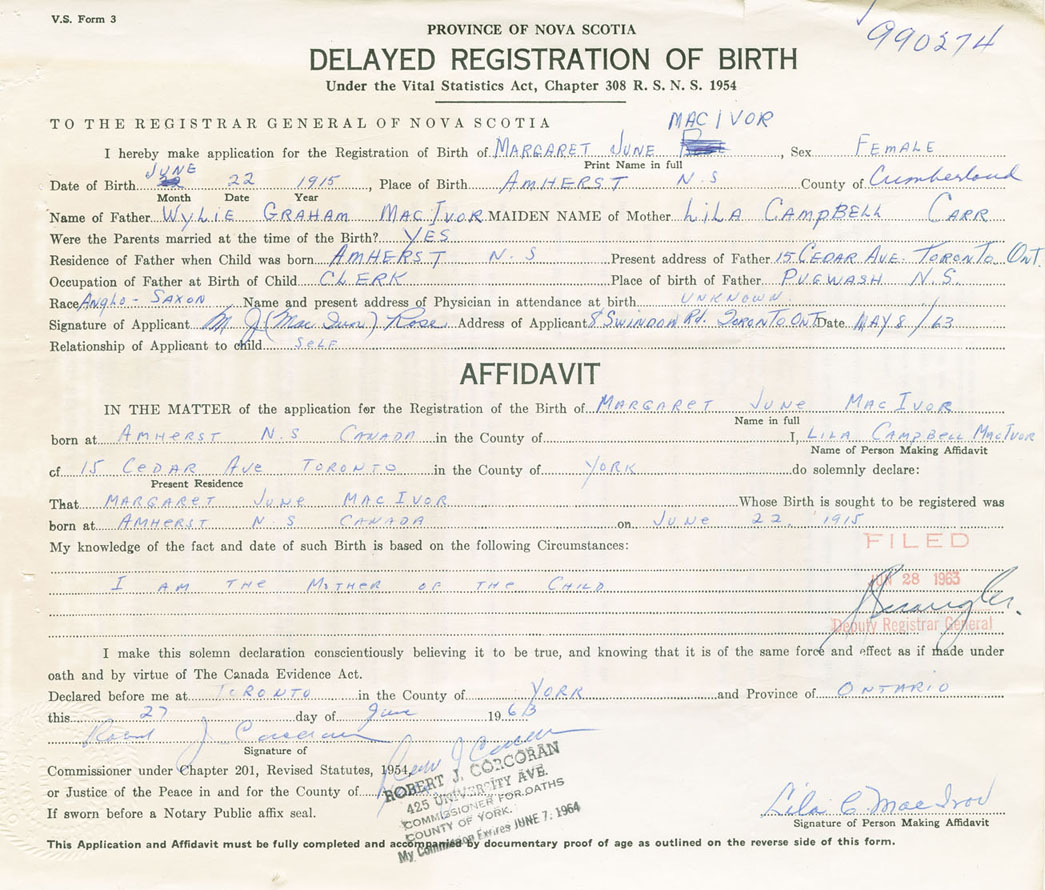 V.S. Form 3
990274
PROVINCE OF NOVA SCOTIA
DELAYED REGISTRATION OF BIRTH
Under the Vital Statistics Act, Chapter 308 R. S. N. S. 1954
TO THE REGISTRAR GENERAL OF NOVA SCOTIA
MACIVOR
I hereby make application for the Registration of Birth of MARGARET JUNE, Sex FEMALE
Print Name in full
JUNE
Date of Birth 22 1915, Place of Birth AMHERST N.S County of Cumberland
Month Date Year
Name of Father WYLIE GRAHAM MACIVOR MAIDEN NAME of Mother LILA CAMPBELL CARR
Were the Parents married at the time of the Birth? YES
Residence of Father when Child was born AMHERST N.S Present address of Father 15 CEDAR AVE. TORONTO Ont.
Occupation of Father at Birth of Child CLERK Place of birth of Father PUGWASH N.S.
Race Anglo-SAXON Name and present address of Physician in attendance at birth UNKNOWN
Signature of Applicant M J (Mac Ivor) Rose Address of Applicant 8 SWINDON Rd. TORONTO ONT Date MAY 8/63
Relationship of Applicant to child SELF
AFFIDAVIT
IN THE MATTER of the application for the Registration of the Birth of MARGARET JUNE MACIVOR
Name in full
born at AMHERST N.S CANADA in the County of I, LILA CAMPBELL MACIVOR
Name of Person Making Affidavit
of 15 CEDAR AVE TORONTO in the County of YORK do solemnly declare:
Present Residence
That MARGARET JUNE MACIVOR Whose Birth is sought to be registered was
born at AMHERST N S CANADA on JUNE 22, 1915
FILED
My knowledge of the fact and date of such Birth is based on the following Circumstances:
JUN 28 1963
I AM THE MOTHER OF THE CHILD
Deputy Registrar General
I make this solemn declaration conscientiously believing it to be true, and knowing that it is of the same force and effect as if made under
oath and by virtue of The Canada Evidence Act.
Declared before me at TORONTO in the County of YORK and Province of ONTARIO
this 27 day of June 1963
Robert J Corcoran
Signature of
Commissioner under Chapter 201, Revised Statutes, 1954,
or Justice of the Peace in and for the County of
If sworn before a Notary Public affix seal.
ROBERT J. CORCORAN
425 UNIVERSITY AVE.
COMMISSIONER FOR OATHS
COUNTY OF YORK.
My Commission Expires JUNE 7, 1964
Lila C. MacIvor
Signature of Person Making Affidavit
This Application and Affidavit must be fully completed and accompanied by documentary proof of age as outlined on the reverse side of this form.